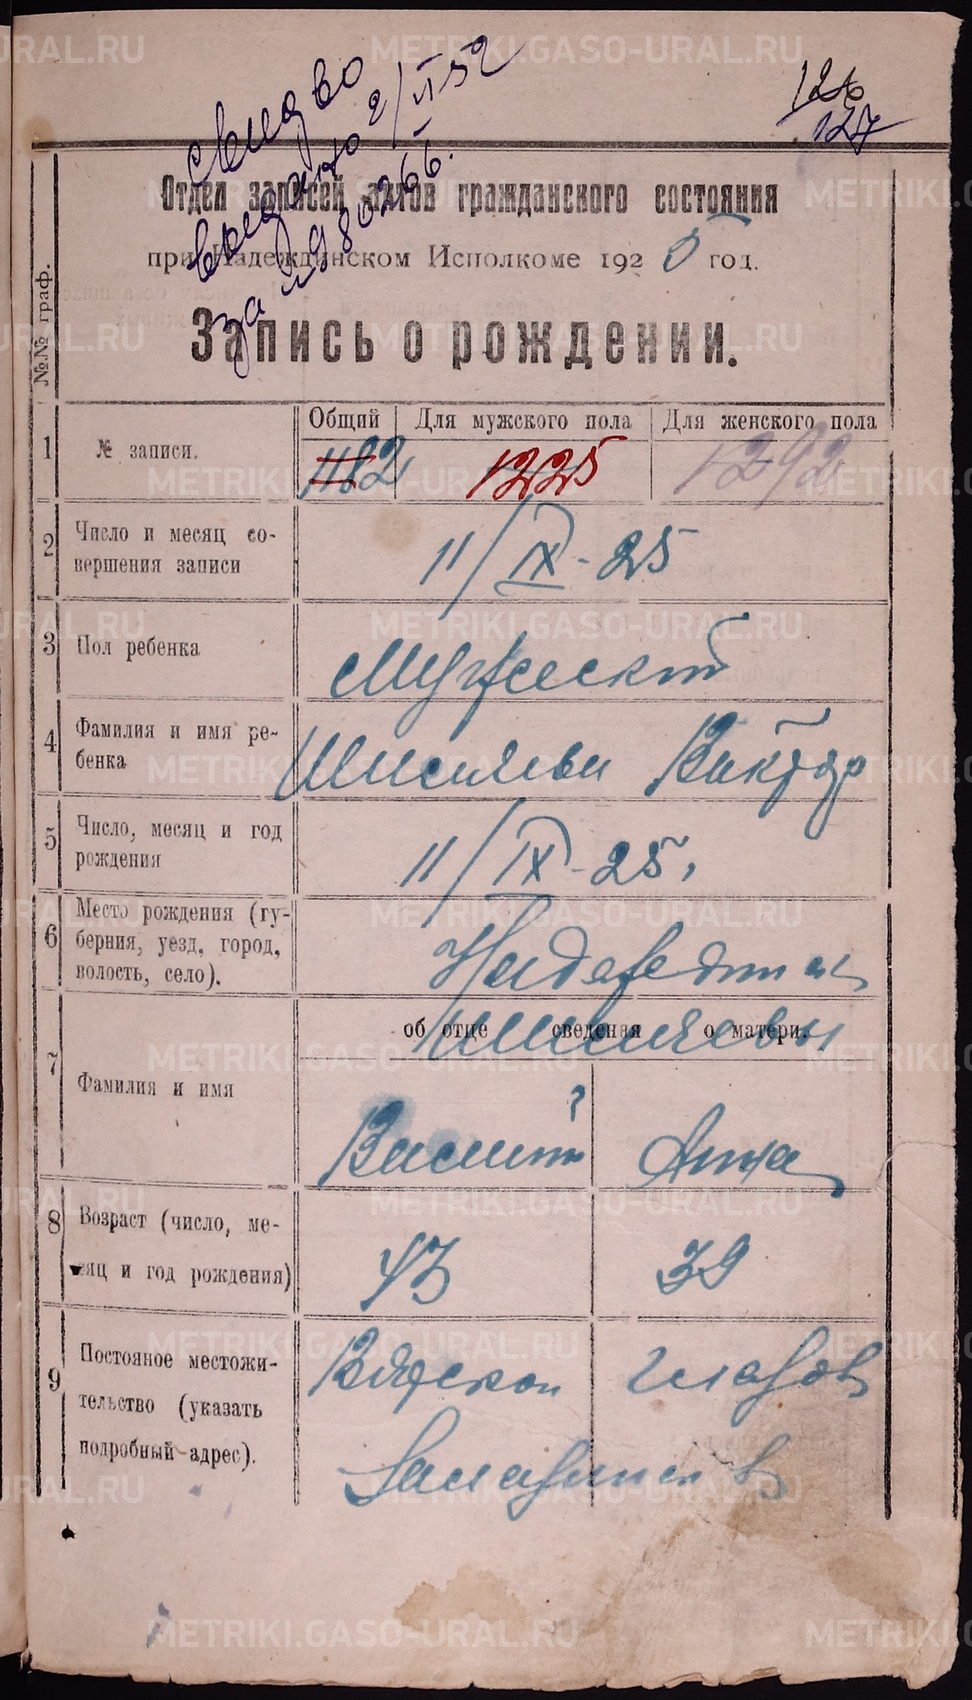 свид во
выдано 2/VI 52
за № 980266.
126
127
Отдел записей актов гражданского состояния
при Надеждинском Исполкоме 1925 год.
Запись о рождении.
№№ граф.
Общий Для мужского пола Для женского пола
1 № записи. 1182 1225 1292
2 Число и месяц со-
вершения записи
11/IX-25
3 Пол ребенка Мужеский
4 Фамилия и имя ре-
бенка
Виктор
5 Число, месяц и год
рождения
11/IX-25
6 Место рождения (гу-
берния, уезд, город,
волость, село).
об отце сведения о матери.
7 Фамилия и имя
Василий Анна
8 Возраст (число, ме-
сяц и год рождения)
43 39
9 Постояное местожи-
тельство (указать
подробный адрес).
Вятской Глазов
METRIKI.GASO-URAL.RU